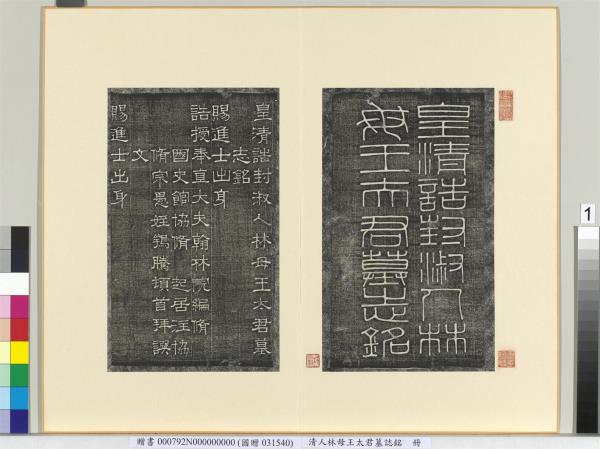 皇清誥封淑人林
母王太君墓志銘
皇清誥封淑人林母王太君墓
志銘
賜進士出身
誥授奉直大夫翰林院編脩
國史館協脩 起居注協
脩宗愚姪鶚騰頓首拜譔
文
賜進士出身
1
贈書 000792N000000000 (國贈 031540) 清人林母王太君墓誌銘 冊